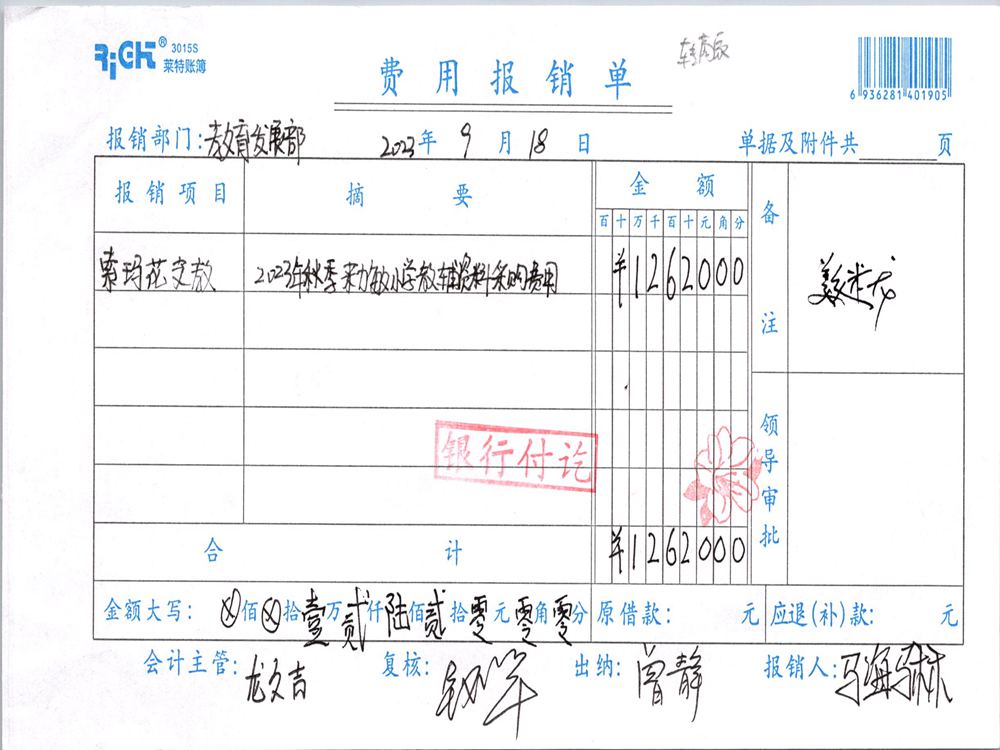 RiGHT® 3015S
莱特账簿
费用报销单
6 936281 401905
报销部门:教育发展部 2023年 9月 18日 单据及附件共 页
报销项目 摘要 金额 备注
百十万千百十元角分
索玛花支教 2023年秋季来力敏小学教辅资料采购费用 ¥1262000
银行付讫
领导审批
合计 ¥1262000
金额大写: ⊗佰⊗拾壹万贰仟陆佰贰拾零元零角零分 原借款: 元 应退(补)款: 元
会计主管:龙文吉 复核: 出纳:曾静 报销人:马海马林